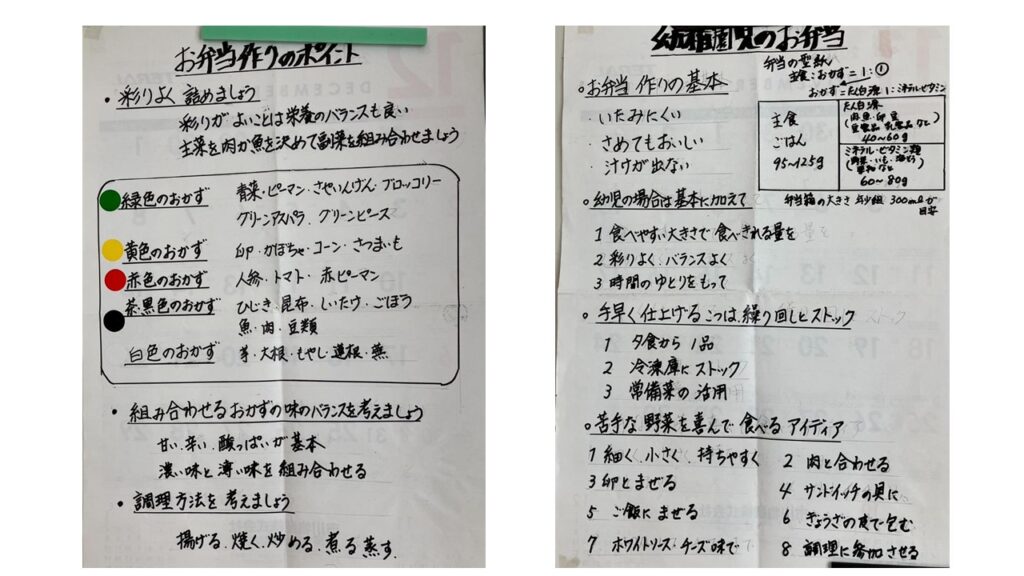 お弁当作りのポイント
・彩りよく詰めましょう
彩りがよいことは栄養のバランスも良い
主菜を肉か魚を決めて副菜を組み合わせましょう
緑色のおかず 青菜・ピーマン・さやいんげん・ブロッコリー
グリーンアスパラ、グリーンピース
黄色のおかず 卵・かぼちゃ・コーン・さつまいも
赤色のおかず 人参・トマト・赤ピーマン
茶・黒色のおかず ひじき・昆布・しいたけ・ごぼう
魚・肉・豆類
白色のおかず 芋・大根・もやし・蓮根・蕪
・組み合わせるおかずの味のバランスを考えましょう
甘い、辛い、酸っぱいが基本
濃い味と薄い味を組み合わせる
・調理方法を考えましょう
揚げる、焼く、炒める、煮る、蒸す
幼稚園児のお弁当
弁当の型紙
主食:おかず=1:①
おかず=たんぱく源1:ミネラルビタミン
主食
ごはん
95~125g
たんぱく源
(肉・魚・卵・豆
豆製品・乳製品など)
40~60g
ミネラル・ビタミン類
(野菜・いも・海そう
果物など)
60~80g
弁当箱の大きさ 年少組 300mlが
目安
○お弁当作りの基本
・いたみにくい
・さめてもおいしい
・汁けが出ない
○幼児の場合は基本に加えて
1 食べやすい大きさで食べきれる量を
2 彩りよく、バランスよく
3 時間のゆとりをもって
○手早く仕上げるこつは、繰り回しとストック
1 夕食から1品
2 冷凍庫にストック
3 常備菜の活用
○苦手な野菜を喜んで食べるアイディア
1 細く、小さく、持ちやすく
2 肉と合わせる
3 卵とまぜる
4 サンドイッチの具に
5 ご飯にまぜる
6 ぎょうざの皮で包む
7 ホワイトソース・チーズ味で
8 調理に参加させる